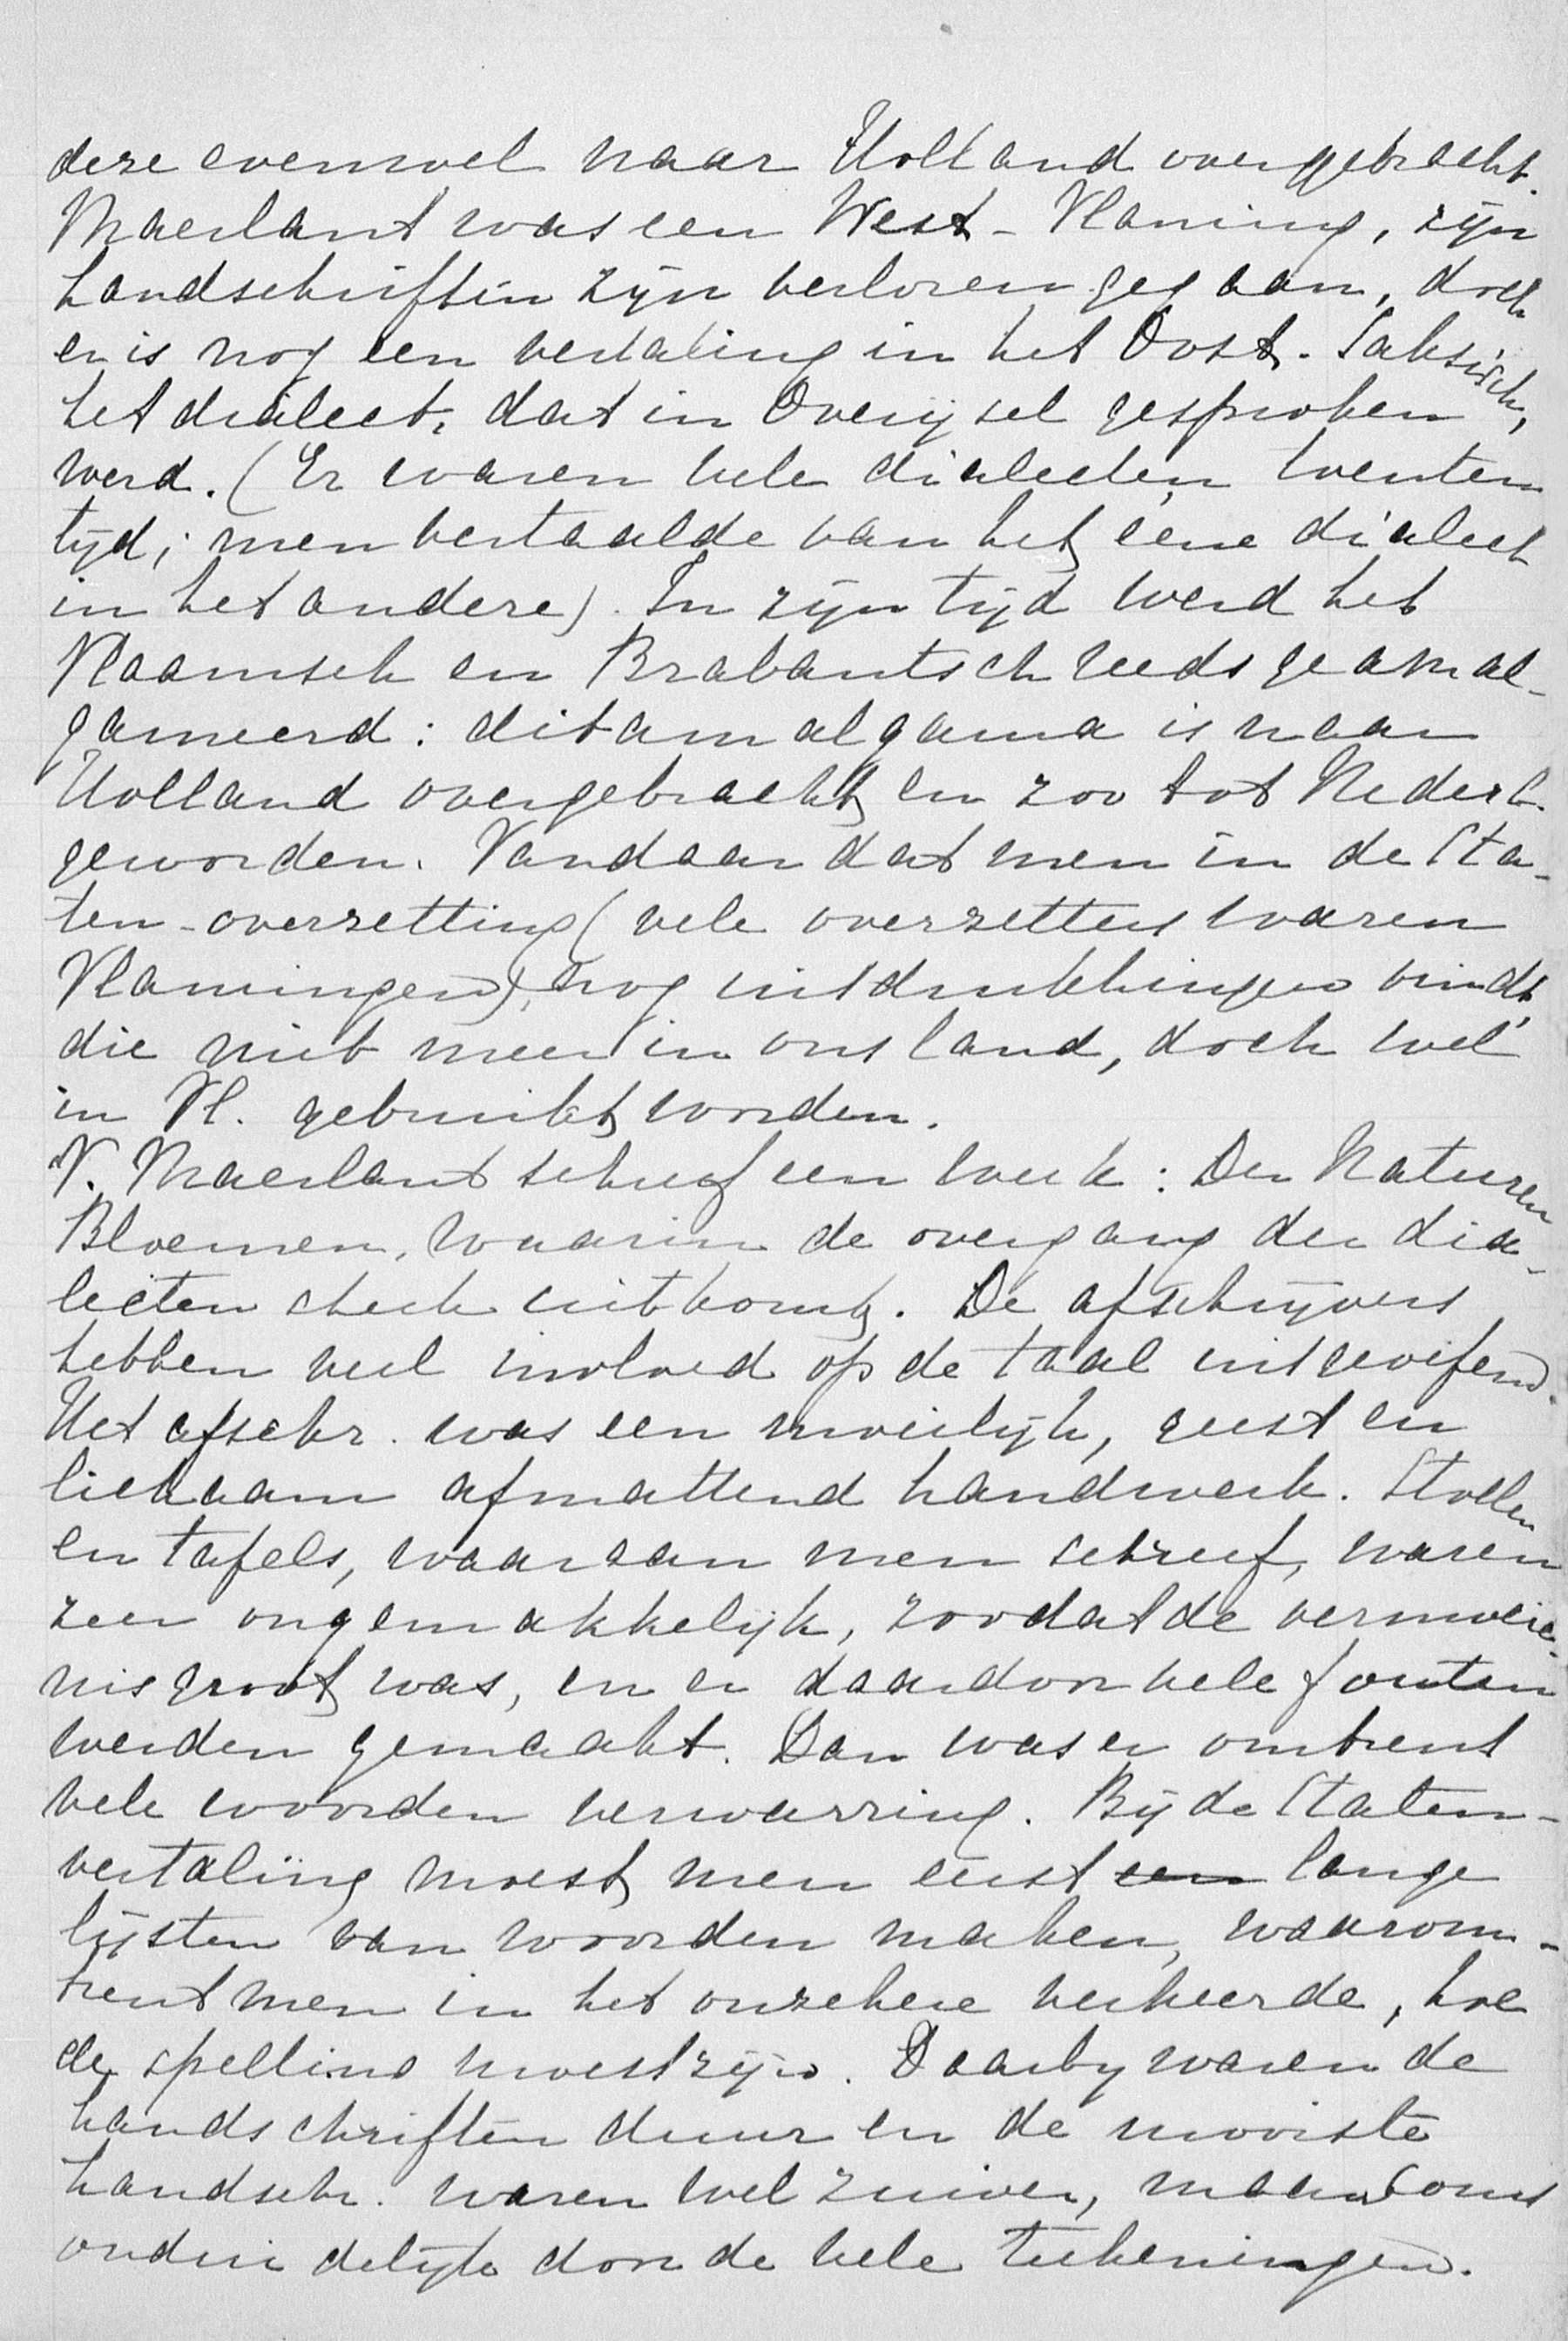 deze evenwel naar Holland overgebracht.
Maerlant was een West-Vlaming, zijn
handschriften zijn verloren gegaan, doch
er is nog een vertaling in het Oost-Saksisch,
het dialect, dat in Overijsel gesproken
werd. (Er waren vele dialecten te
tijd; men vertaalde van het eene dialect
in het andere). In zijn tijd werd het
Vlaamsch en Brabantsch reeds geamal-
gameerd: dit amalgama is naar
Holland overgebracht en zoo tot Nederl.
geworden. Vandaar dat men in de Sta-
ten-overzetting (vele overzetters waren
Vlamingen), nog uitdrukkingen vindt,
die niet meer in ons land, doch wel
in Vl. gebruikt worden.
V. Maerlant schreef een werk: Der Naturen
Bloemen, waarin de overgang der dia-
lecten sterk uitkomt. De afschrijvers
hebben veel invloed op de taal uitgeoefend.
Het afschr. was een moeilijk, geest en
lichaam afmattend handwerk. Stoelen
en tafels, waaraan men schreef, waren
zeer ongemakkelijk, zoodat de vermoeie-
nis groot was, en er daardoor vele fouten
werden gemaakt. Dan was er omtrent
vele woorden verwarring. Bij de Staten-
vertaling moest men eerst een lange
lijsten van woorden maken, waarom-
trent men in het onzekere verkeerde, hoe
de spelling moest zijn. Daarby waren de
handschriften duur en de mooiste
handschr. waren wel zuiver, maar soms
onduidelijk door de vele teekeningen.